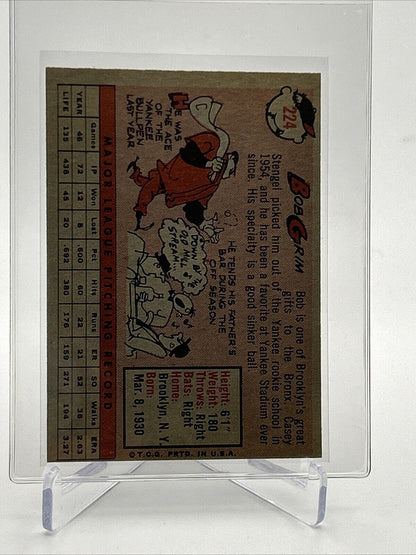 224
BOB GRIM
Bob is one of Brooklyn's great
gifts to the Bronx. Casey
Stengel picked him out of the Yankee rookie school in
1954, and he has been a favorite at Yankee Stadium ever
since. His specialty is a good sinker ball.
HE WAS
THE ACE
OF THE
YANKEE
BULLPEN
LAST YEAR
HE TENDS HIS FATHER'S
BAR DURING THE
OFF SEASON
DOWN BY THE
OLD MILL
STREAM...
Height: 6'1"
Weight: 180
Throws: Right
Bats: Right
Home:
Brooklyn, N. Y.
Born:
Mar. 8, 1930
©T.C.G. PRTD. IN U.S.A.
MAJOR LEAGUE PITCHING RECORD
Games IP Won Lost Pct. Hits Runs ER SO Walks ERA
YEAR 46 72 12 8 .600 60 22 21 52 36 2.63
LIFE 135 438 45 20 .692 380 176 159 271 194 3.27